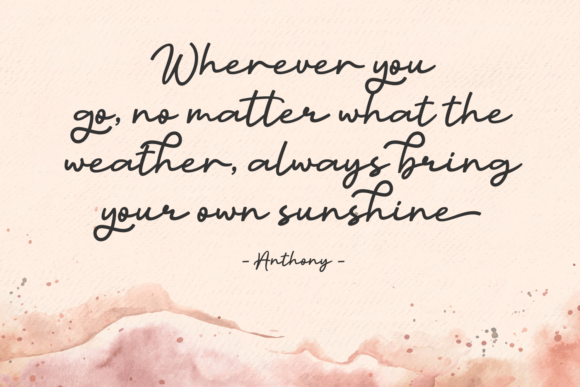 Wherever you
go, no matter what the
weather, always bring
your own sunshine
- Anthony -